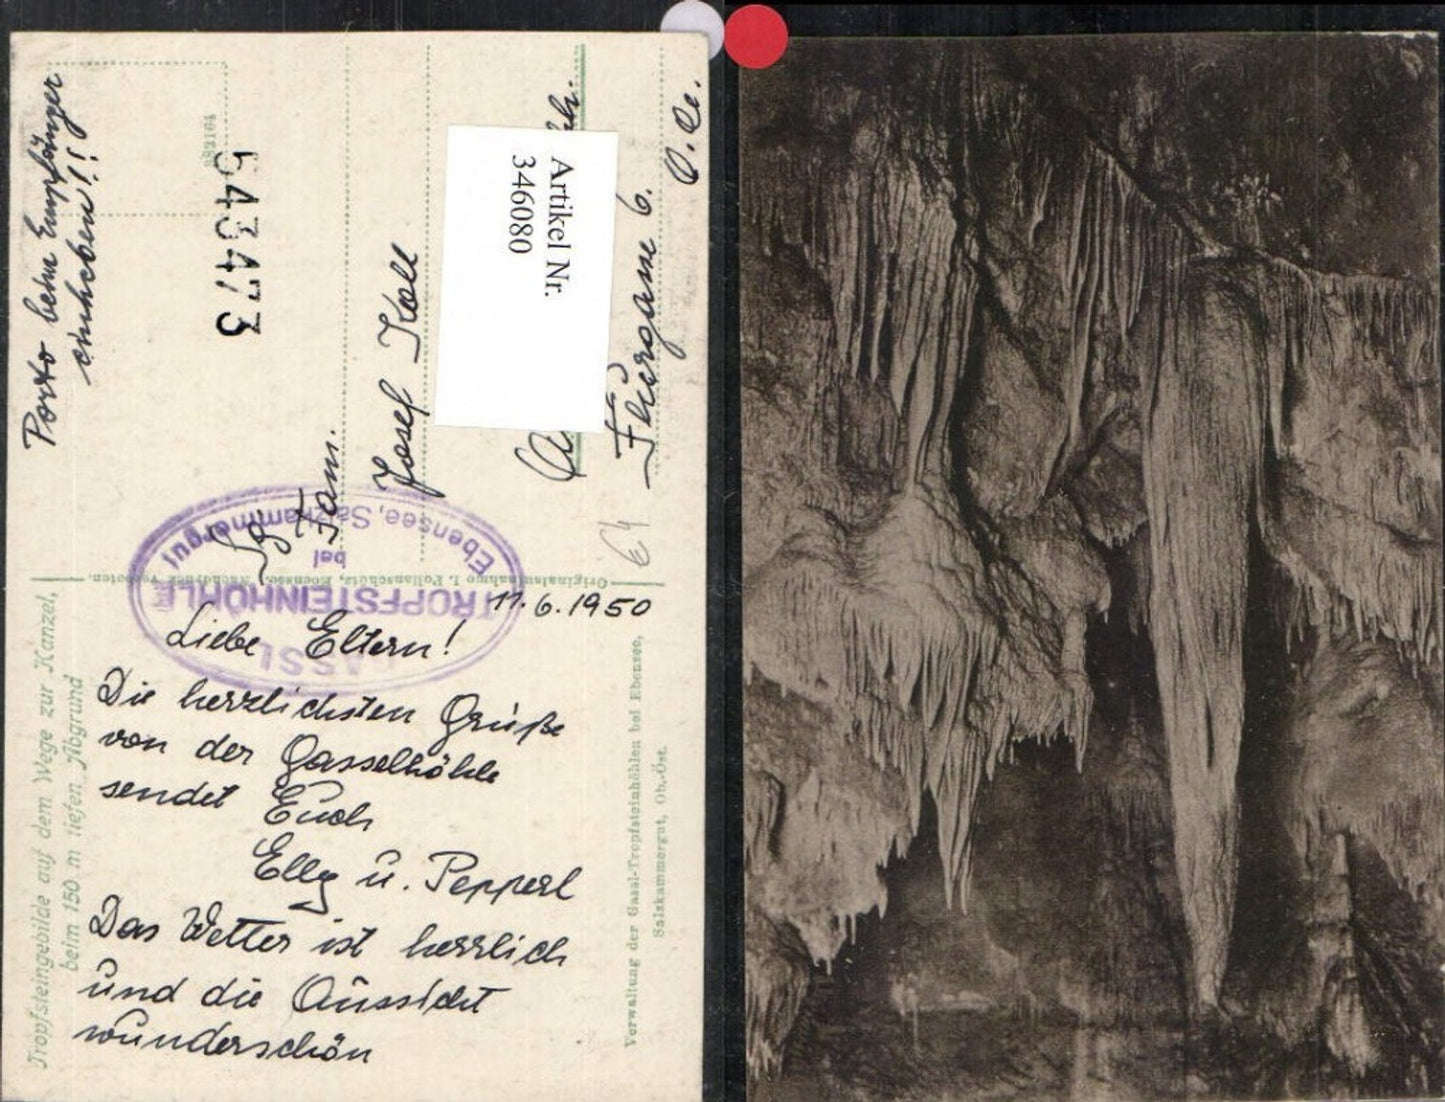 Porto beim Empfänger
einheben!!
543473
Artikel Nr.
346080
Fam.
Josef Koll
Flurgasse 6.
O. Oe.
GASSL
TROPFSTEINHÖHLE
bei
Ebensee, Salzkammergut
Originalaufnahme J. Pollanschütz, Ebensee. Nachdruck verboten.
11.6.1950
Liebe Eltern!
Die herzlichsten Grüße
von der Gasselhöhle
sendet Euch
Elly u. Pepperl
Das Wetter ist herrlich
und die Aussicht
wunderschön
Tropfsteingebilde auf dem Wege zur Kanzel,
beim 150 m tiefen Abgrund
Verwaltung der Gassl-Tropfsteinhöhlen bei Ebensee,
Salzkammergut, Ob.-Öst.